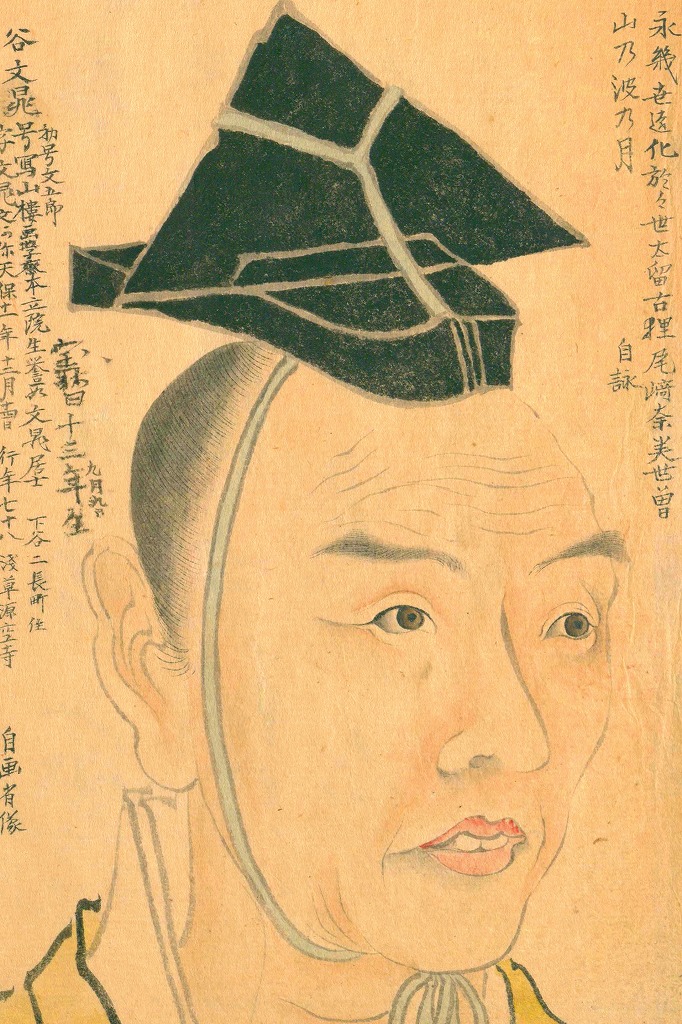 永幾世遠化於々世太留古狸尾﨑奈美世曽
山乃波乃月
自詠
谷文晁
初号文五郎
号写山樓画学齋本立院生誉一如文晁居士 下谷二長町住
字文晁 天保十一年十二月 行年七十八 浅草源空寺
宝暦十三年生
九月九日
自画肖像